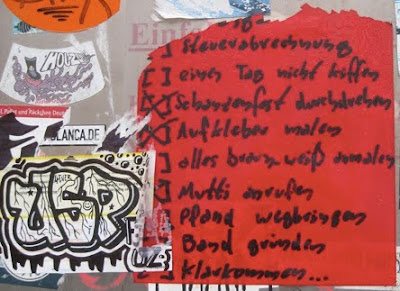 MOVZ
Einf
BLANCA.DE
[ ] Steuerabrechnung
[ ] einen Tag nicht kiffen
[X] Schanzenfest durchdrehen
[X] Aufkleber malen
[ ] alles braun-weiß anmalen
[ ] Mutti anrufen
[ ] Pfand wegbringen
[ ] Band gründen
[ ] Klarkommen...